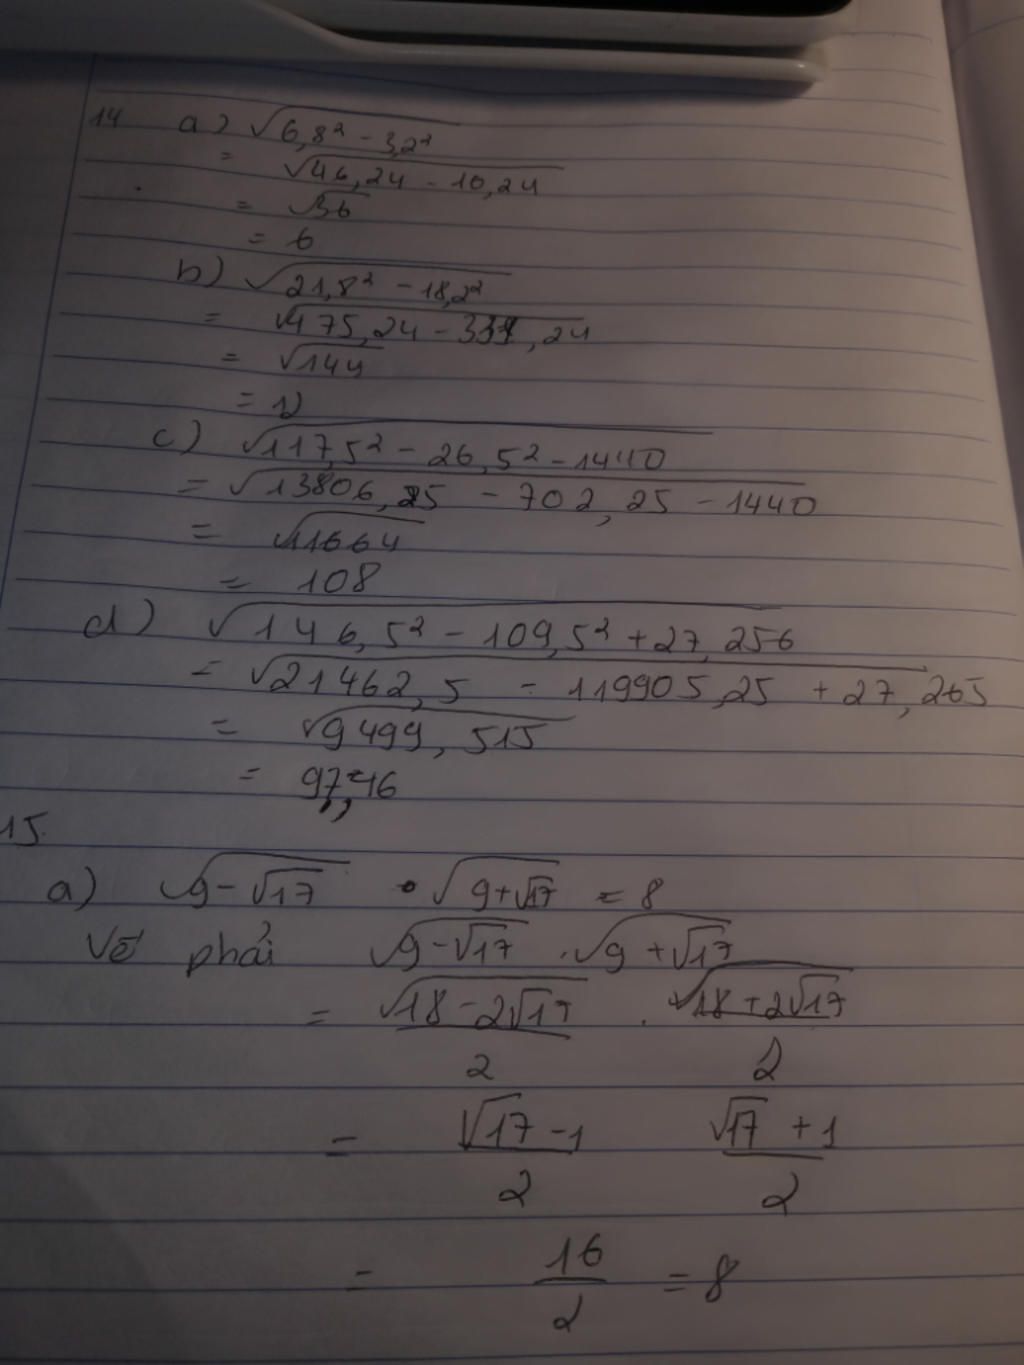 14 a) √6,8² - 3,2²
= √46,24 - 10,24
= √36
= 6
b) √21,8² - 18,2²
= √475,24 - 331,24
= √144
= 12
c) √117,5² - 26,5² - 1440
= √13806,25 - 702,25 - 1440
= √11664
= 108
d) √146,5² - 109,5² + 27,256
= √21462,5 - 119905,25 + 27,265
= √9499,515
= 97,46
15.
a) √9-√17 • √9+√17 = 8
Vế phải √9-√17 . √9+√17
= √18-2√17 . √18+2√17
2 2
= √17 - 1 √17 + 1
2 2
= 16 = 8
2